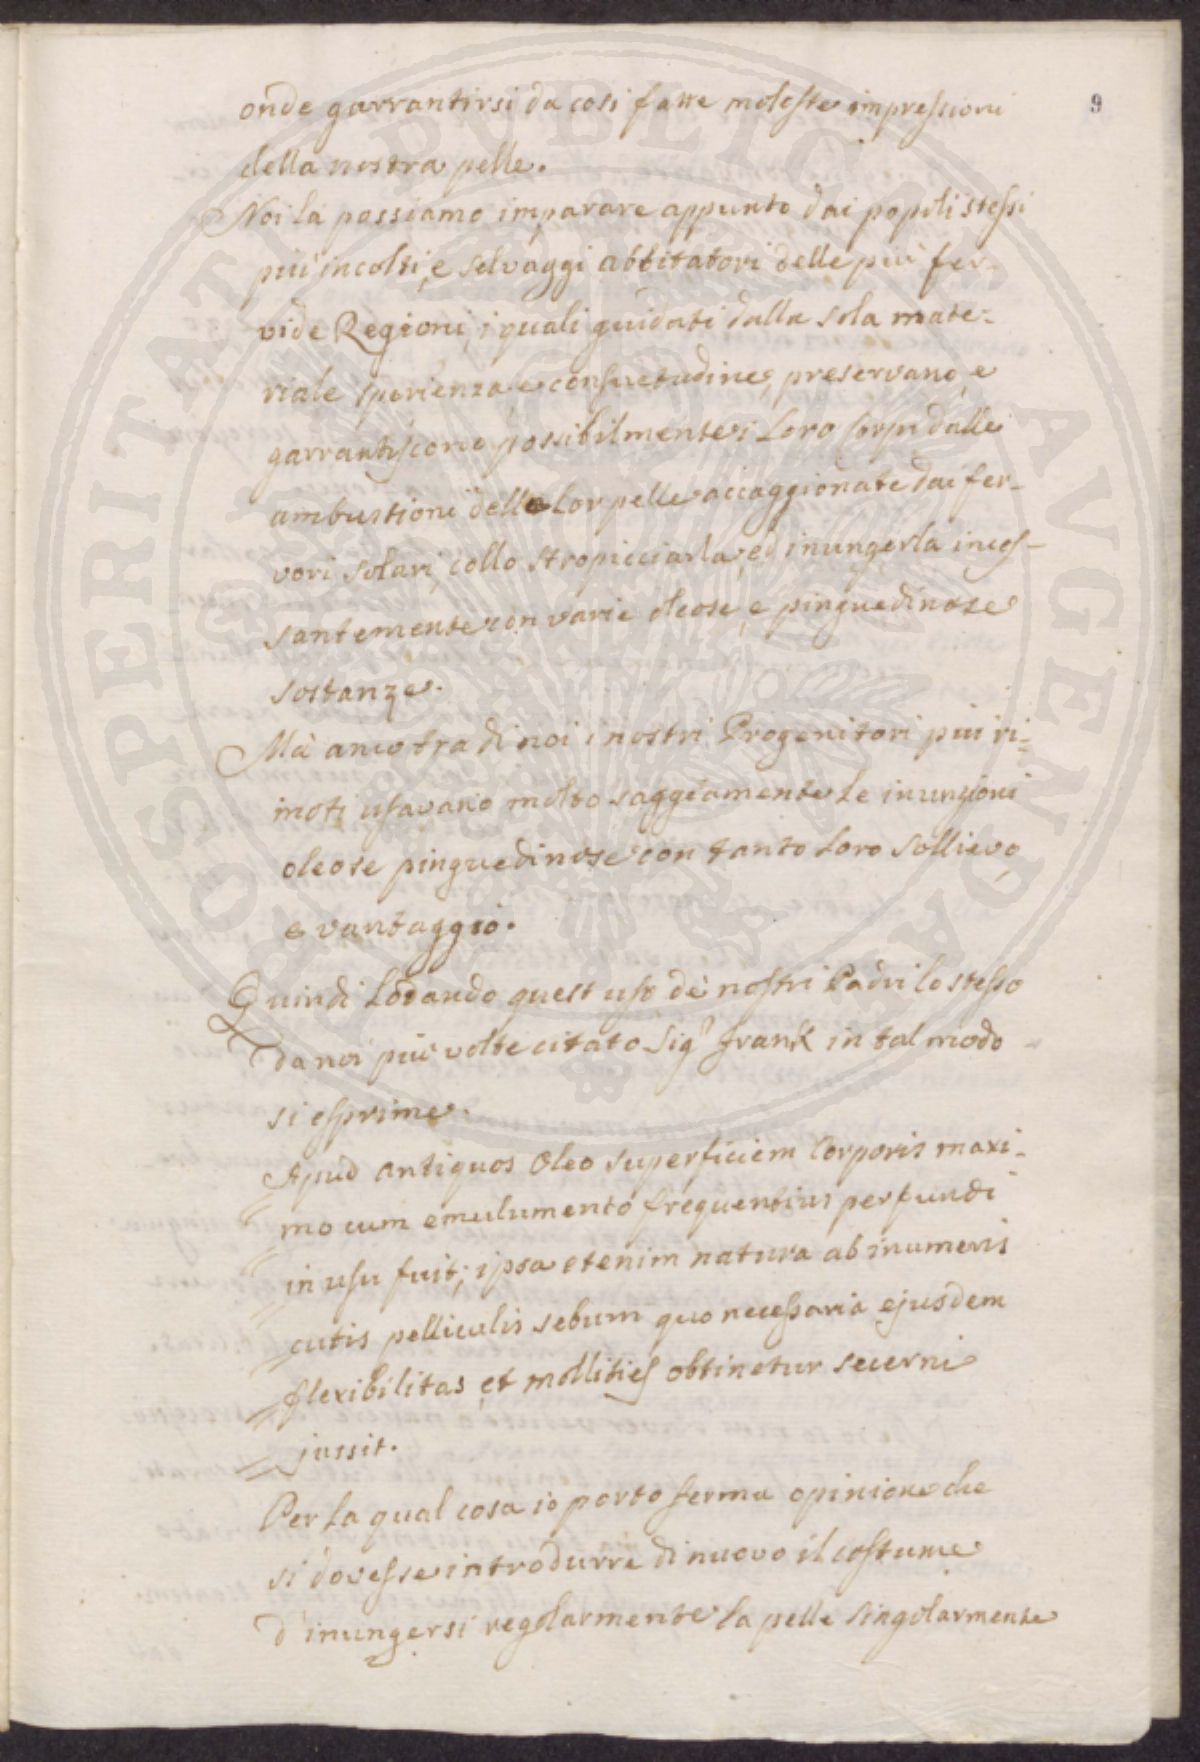 9
onde garrantirsi da cosi fatte moleste impressioni
della nostra pelle.
Noi la possiamo imparare appunto dai popoli stessi
più incolti, e selvaggi abbitatori delle più fer-
vide Regioni, i quali guidati dalla sola mate-
riale sperienza e consuetudine, preservano, e
garrantiscono possibilmente i Loro Corpi dalle
ambustioni della Lor pelle accaggionate dai fer-
vori solari, collo stropicciarla, ed inungerla inces-
santemente con varie oleose, e pinguedinose
sostanze.
Mà anco tra di noi i nostri Progenitori più ri-
moti usavano molto saggiamente le inunzioni
oleose pinguedinose con tanto Loro Sollievo
e vantaggio.
Quindi Lodando quest uso de nostri Padri lo stesso
da noi più volte citato Sigr Frank in tal modo
si esprime.
Apud antiquos Oleo superficiem Corporis maxi-
mo cum emulumento frequentius perfundi
in usu fuit; ipsa etenim natura ab inumeris
cutis pelliculis sebum quo necessaria ejusdem
flexibilitas et mollities obtinetur secerni
jussit.
Per la qual cosa io porto ferma opinione che
si dovesse introdurre di nuovo il costume
d'inungersi regolarmente la pelle singolarmente
PROSPERITATI PUBLICAE AUGENDAE